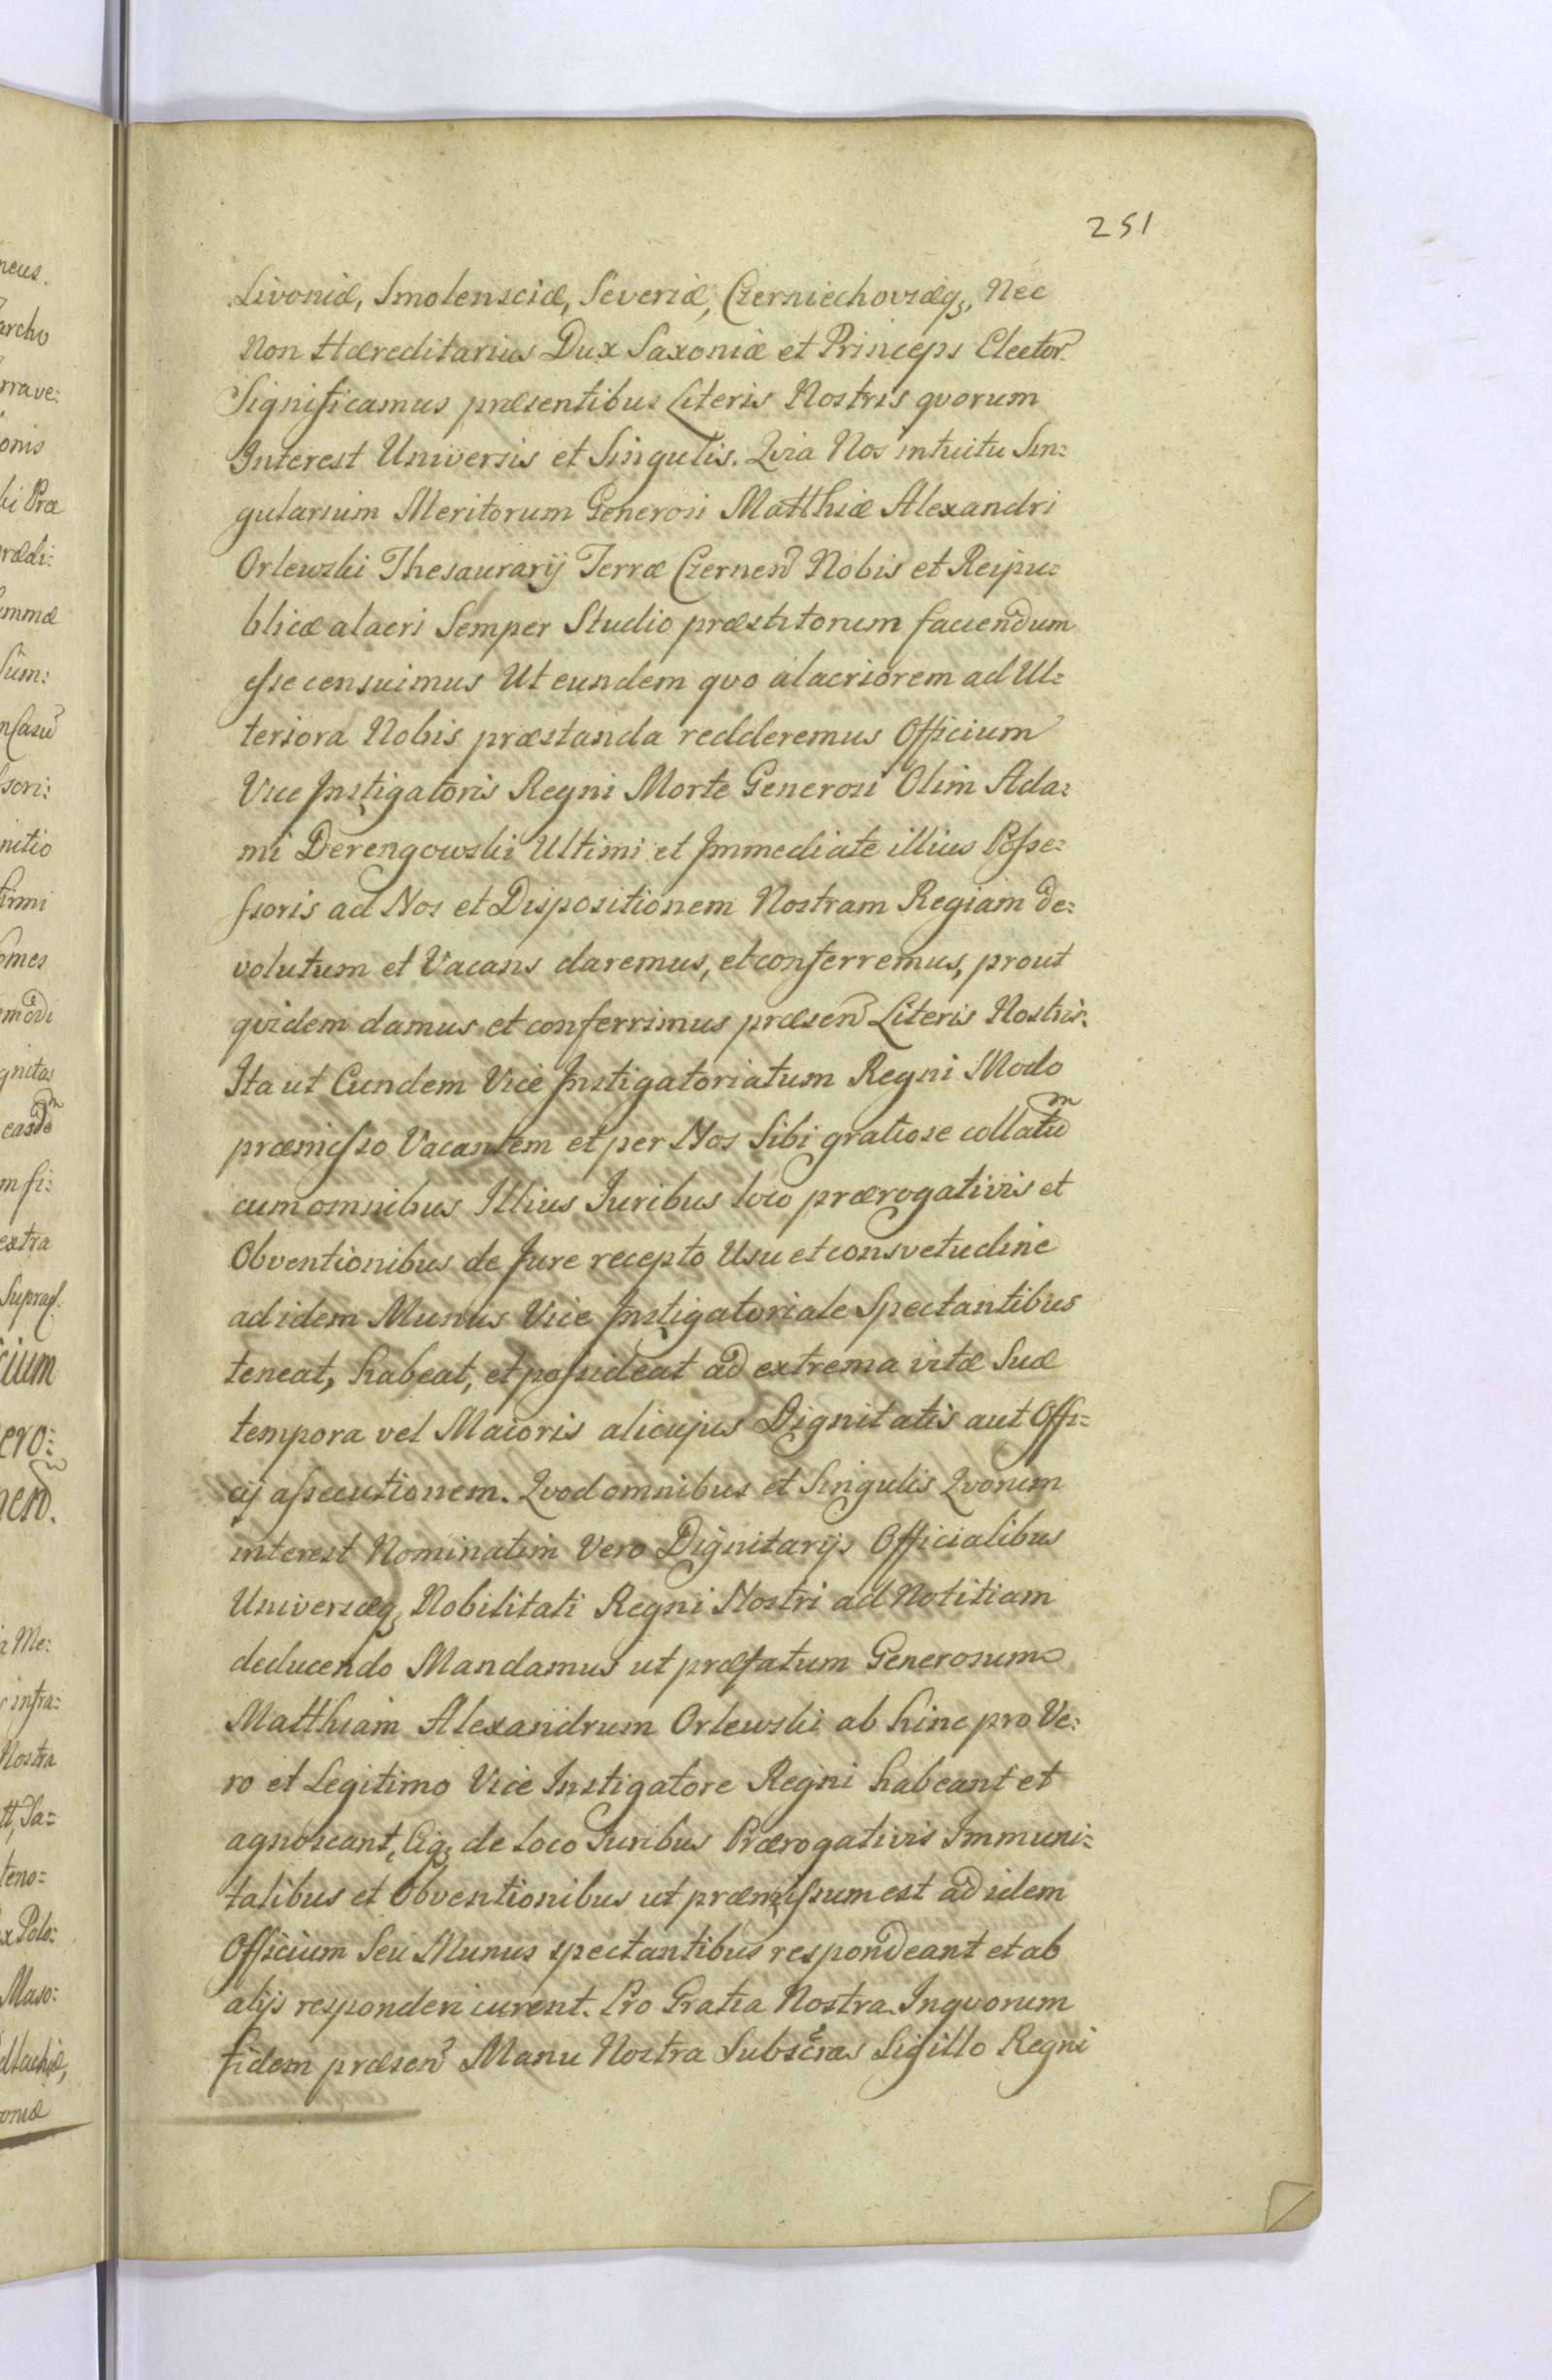 251
Livoniæ, Smolensciæ, Severiæ, Czerniechoviæq;, Nec
Non Hæreditarius Dux Saxoniæ et Princeps Elector.
Significamus præsentibus Literis Nostris qvorum
Interest Universis et Singulis. Qvia Nos intuitu Sin:
gularium Meritorum Generosi Matthiæ Alexandri
Orlewski Thesaurarij Terræ Czernen Nobis et Reipu:
blicæ alacri Semper Studio præstitorum faciendum
esse censuimus Ut eundem qvo alacriorem ad Ul:
teriora Nobis præstanda redderemus Officium
Vice Instigatoris Regni Morte Generosi Olim Ada:
mi Derengowski Ultimi et Immediate illius Posse:
ssoris ad Nos et Dispositionem Nostram Regiam de:
volutum et Vacans daremus, et conferremus, prout
qvidem damus et conferrimus præsen Literis Nostris.
Ita ut Eundem Vice Instigatoriatum Regni Modo
præmisso Vacantem et per Nos Sibi gratiose collatum
cum omnibus Illius Juribus loco prærogativis et
Obventionibus de Jure recepto Usu et consvetudine
ad idem Munus Vice Instigatoriale Spectantibus
teneat, habeat, et possideat ad extrema vitæ Suæ
tempora vel Maioris alicujus Dignitatis aut Offi:
cij assecutionem. Qvod omnibus et Singulis Qvorum
interest Nominatim Vero Dignitarijs Officialibus
Universæq; Nobilitati Regni Nostri ad Notitiam
deducendo Mandamus ut præfatum Generosum
Matthiam Alexandrum Orlewski ab hinc pro Ve:
ro et Legitimo Vice Instigatore Regni habeant et
agnoscant, Eiq; de loco Juribus Prærogativis Immuni:
tatibus et Obventionibus ut præmissum est ad idem
Officium Seu Munus spectantibus respondeant et ab
alijs responderi curent. Pro Gratia Nostra. In qvorum
fidem præsen Manu Nostra Subscras Sigillo Regni